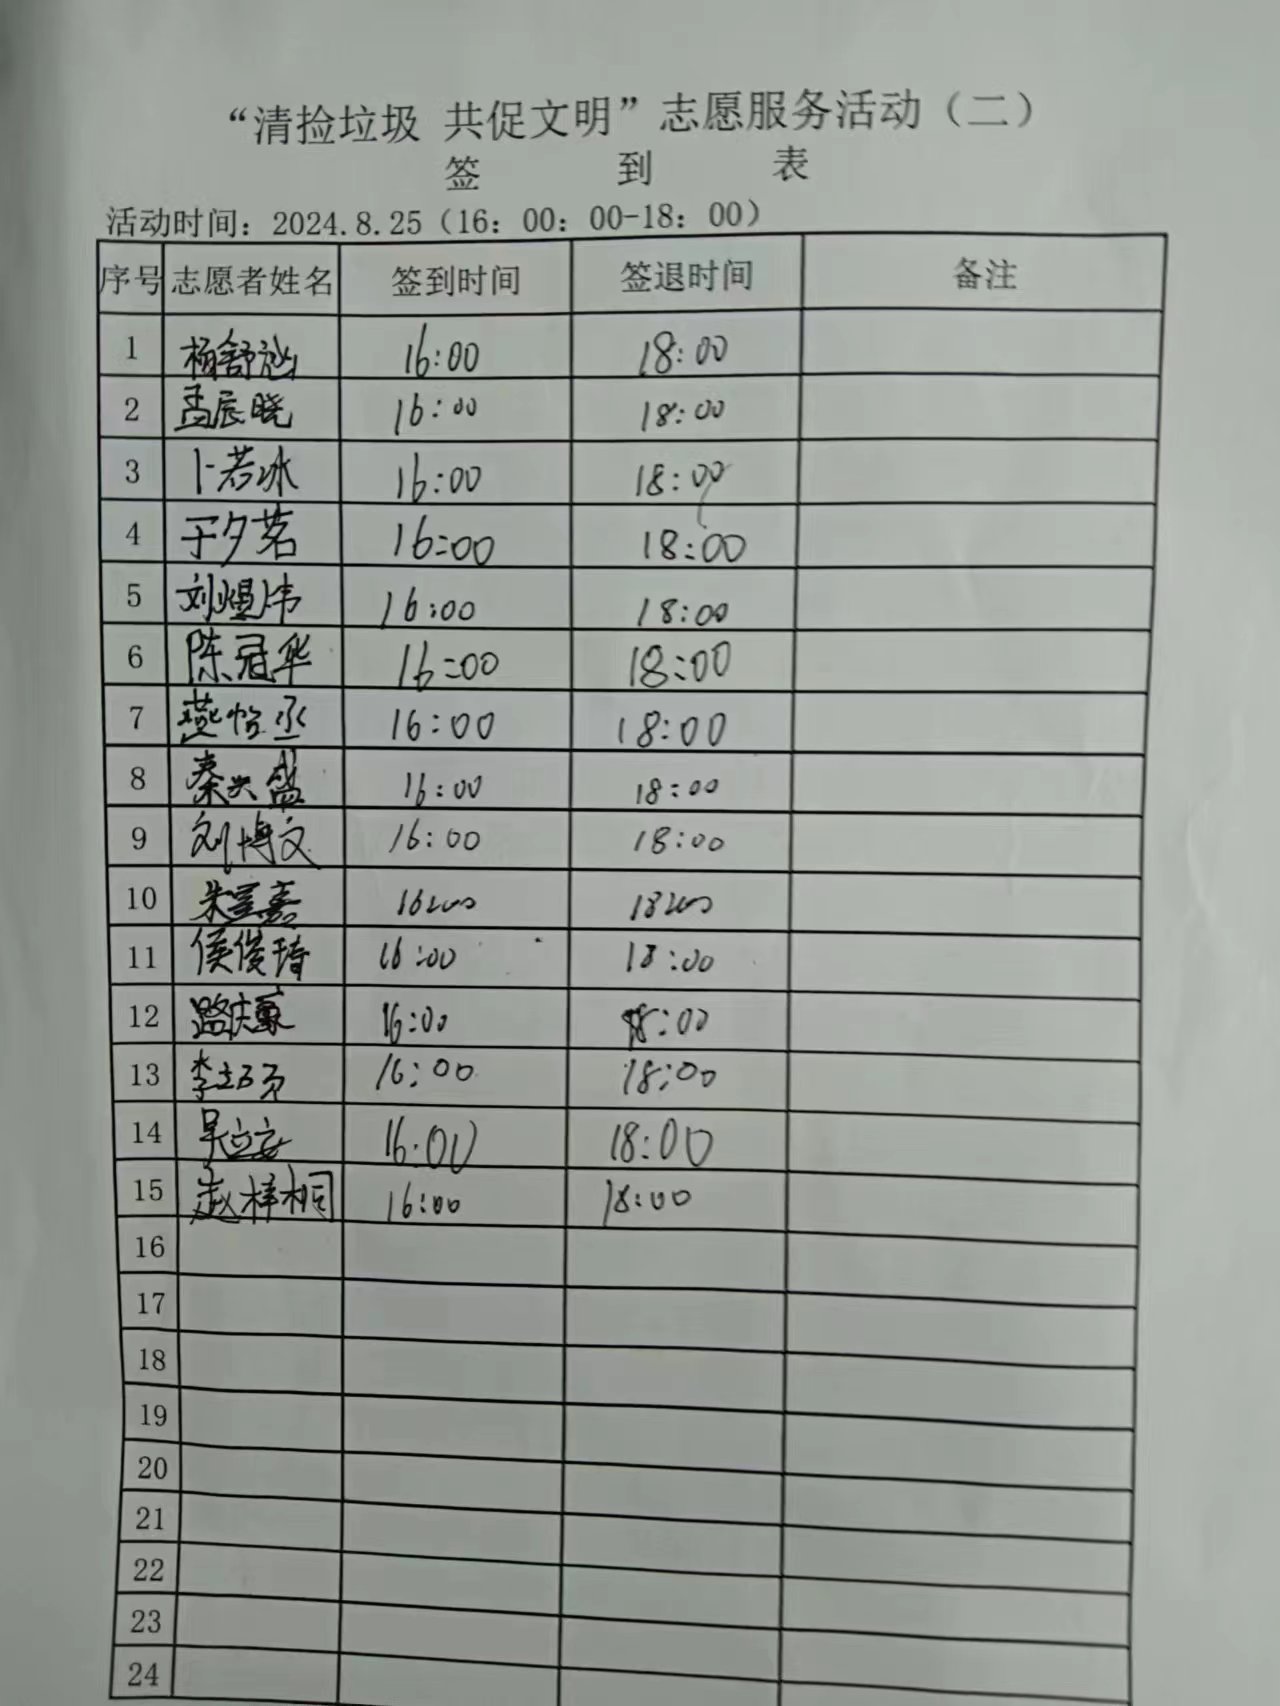 “清捡垃圾 共促文明”志愿服务活动（二）
签 到 表
活动时间：2024.8.25（16：00：00-18：00）
序号 志愿者姓名 签到时间 签退时间 备注
1 杨舒 16:00 18:00
2 孟辰晓 16:00 18:00
3 卜若冰 16:00 18:00
4 于夕茗 16:00 18:00
5 刘煴炜 16:00 18:00
6 陈冠华 16:00 18:00
7 燕怡丞 16:00 18:00
8 秦兴盛 16:00 18:00
9 刘博文 16:00 18:00
10 朱宣嘉 16:00 18:00
11 侯俊琦 16:00 18:00
12 路庆 16:00 18:00
13 李 16:00 18:00
14 吴立安 16:00 18:00
15 赵梓桐 16:00 18:00
16
17
18
19
20
21
22
23
24